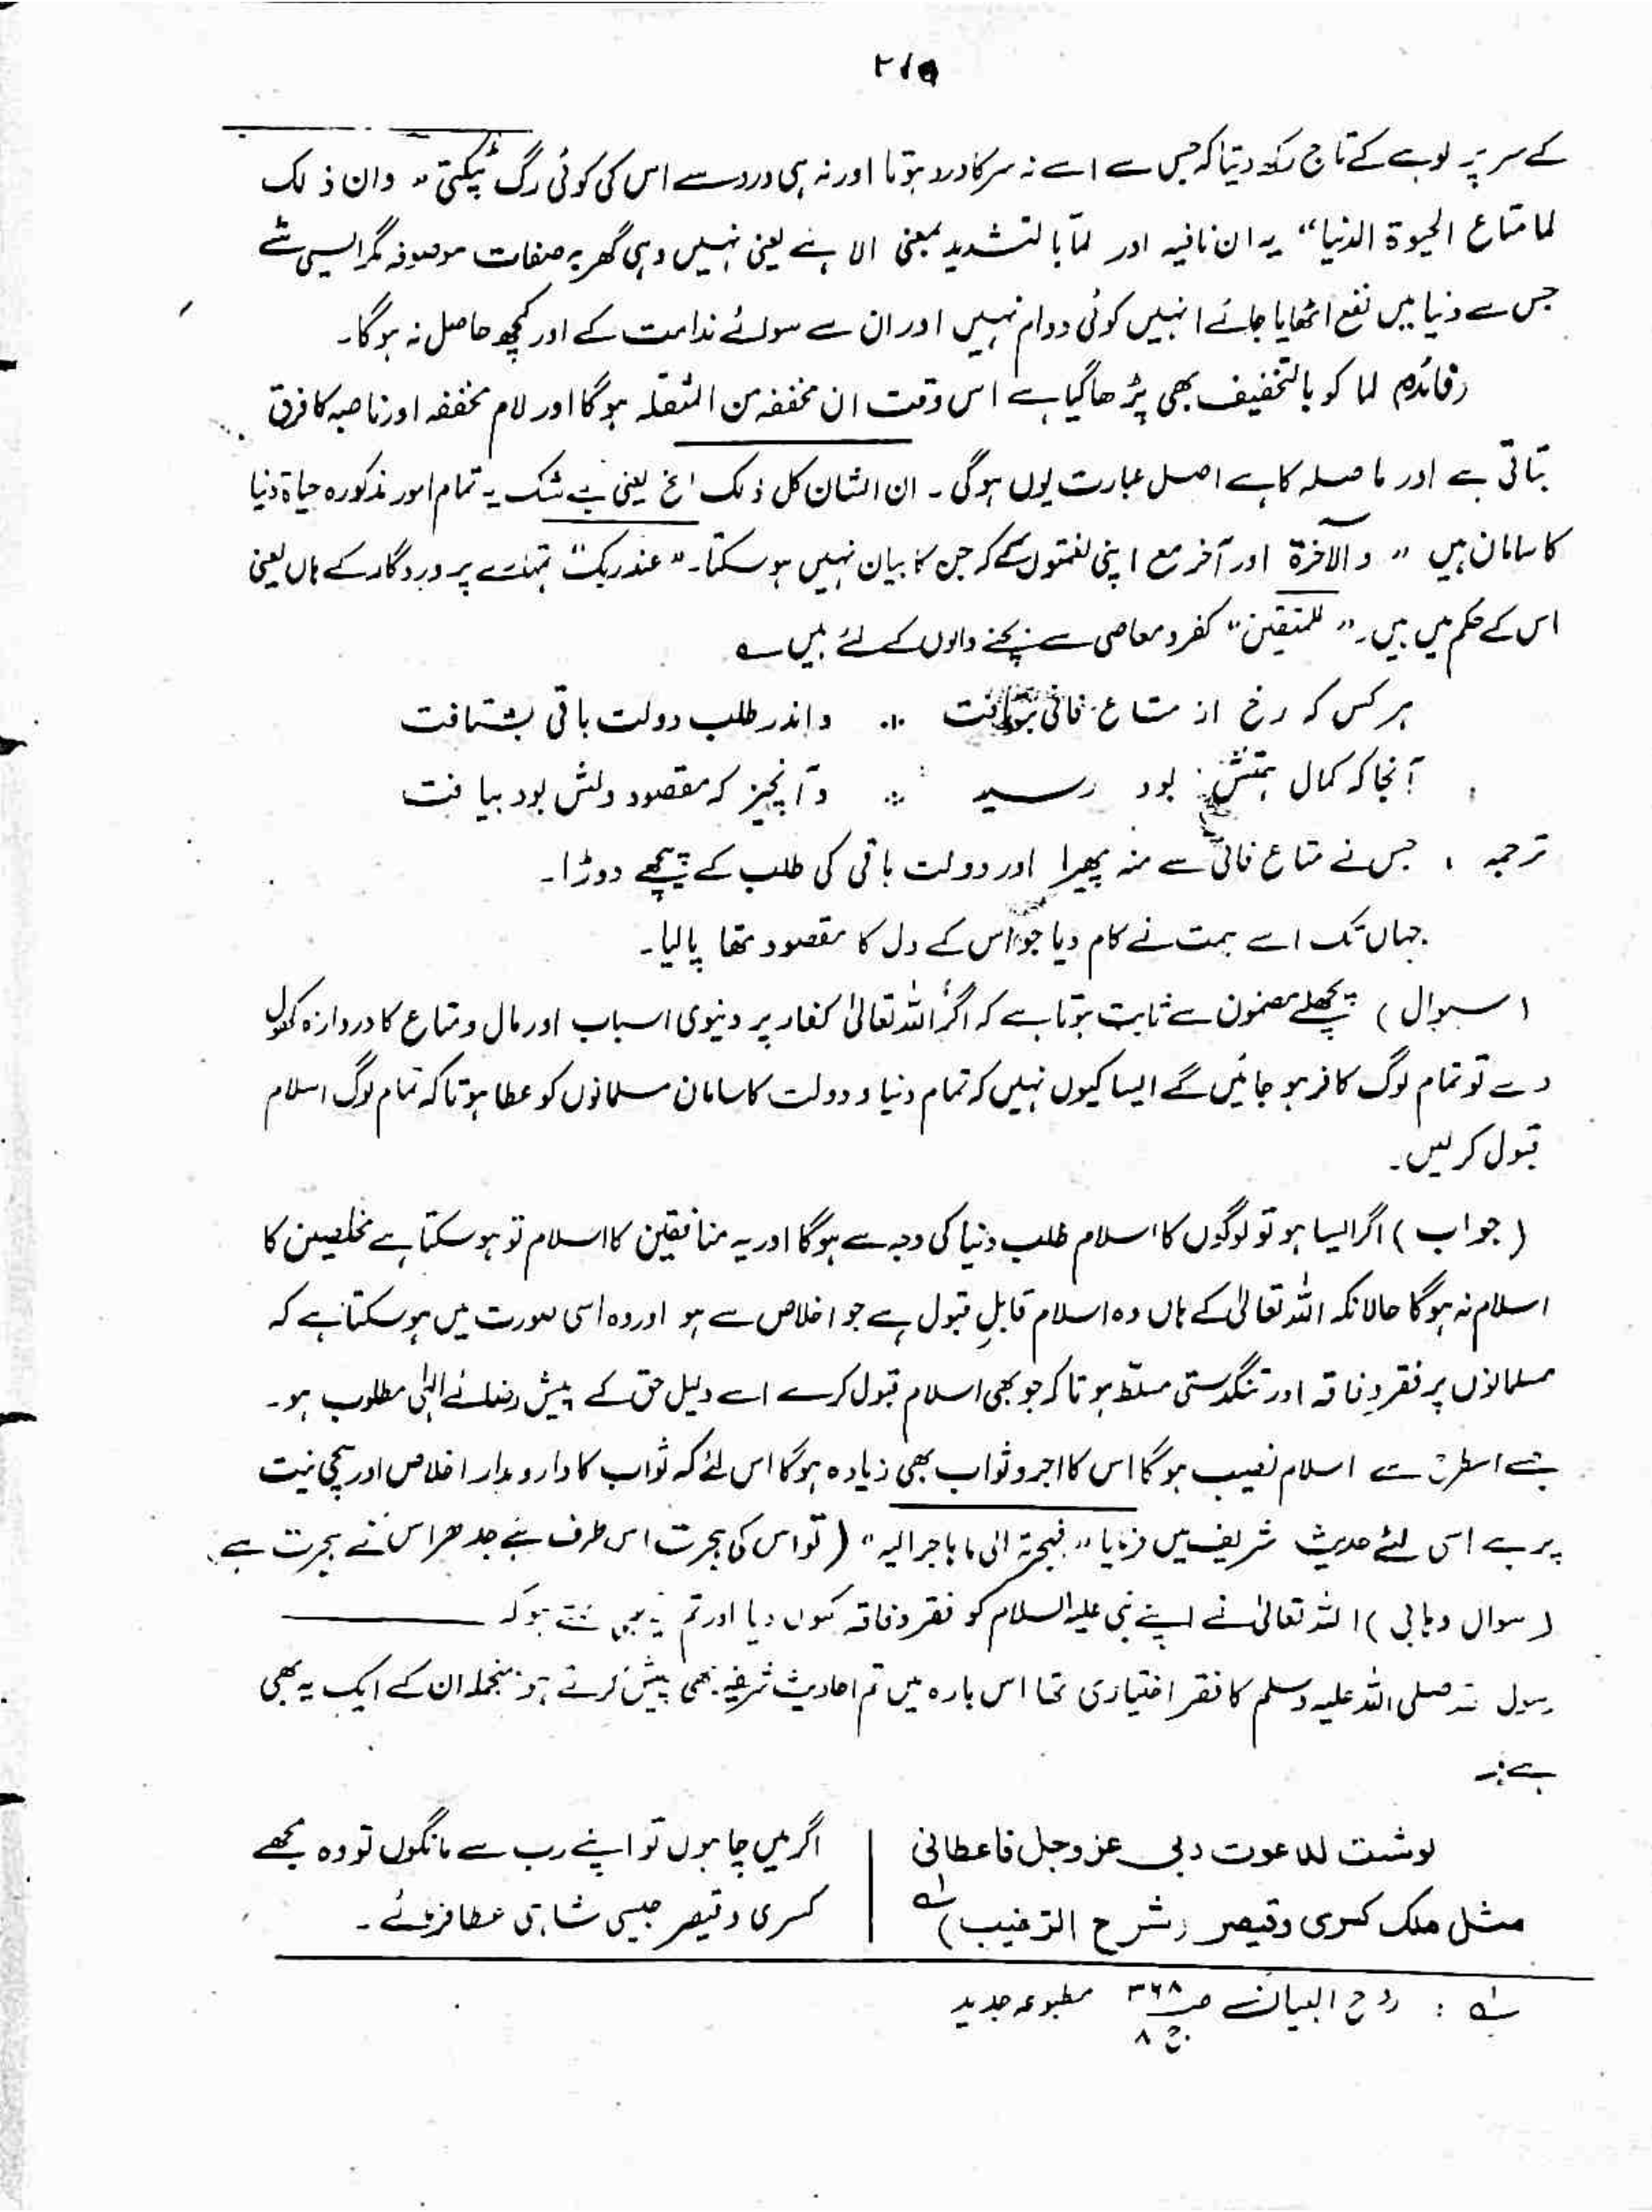 ۲۱۵
کے سر پر لوہے کے تاج رکھ دیتا کہ جس سے اسے نہ سر کا درد ہوتا اور نہ ہی درد سے اس کی کوئی رگ ٹپکتی " وان ذلک
لما متاع الحیوۃ الدنیا" یہ ان نافیہ اور لمّا بالتشدید بمعنی الا ہے یعنی نہیں وہی گھر بہ صفات موصوفہ مگر ایسی شے
جس سے دنیا میں نفع اٹھایا جائے انہیں کوئی دوام نہیں اور ان سے سوائے ندامت کے اور کچھ حاصل نہ ہوگا۔
(فائدہ) لما کو بالتخفیف بھی پڑھا گیا ہے اس وقت ان مخففہ من المثقلہ ہوگا اور لام مخففہ اور ناصبہ کا فرق
بتاتی ہے اور ما صلہ کا ہے اصل عبارت یوں ہوگی۔ ان الشان کل ذلک الخ یعنی بے شک یہ تمام امور مذکورہ حیاۃ دنیا
کا سامان ہیں " والآخرۃ اور آخر مع اپنی نعمتوں کے کہ جن کا بیان نہیں ہو سکتا۔ "عند ربک" تمہارے پروردگار کے ہاں یعنی
اس کے حکم میں ہیں۔ "للمتقین" کفر و معاصی سے بچنے والوں کے لئے ہیں ؎
ہر کس کہ رخ از متاع فانی بر تافت ∴ واندر طلب دولت باقی بشتافت
آنجا کہ کمال ہمتش بود رسید ∴ وآنچیز کہ مقصود دلش بود بیافت
ترجمہ ، جس نے متاع فانی سے منہ پھیرا اور دولت باقی کی طلب کے پیچھے دوڑا۔
جہاں تک اسے ہمت نے کام دیا جو اس کے دل کا مقصود تھا پا لیا۔
(سوال) پچھلے مضمون سے ثابت ہوتا ہے کہ اگر اللہ تعالیٰ کفار پر دنیوی اسباب اور مال و متاع کا دروازہ کھول
دے تو تمام لوگ کافر ہو جائیں گے ایسا کیوں نہیں کہ تمام دنیا و دولت کا سامان مسلمانوں کو عطا ہوتا کہ تمام لوگ اسلام
قبول کر لیں۔
(جواب) اگر ایسا ہو تو لوگوں کا اسلام طلب دنیا کی وجہ سے ہوگا اور یہ منافقین کا اسلام تو ہو سکتا ہے مخلصین کا
اسلام نہ ہوگا حالانکہ اللہ تعالیٰ کے ہاں وہ اسلام قابلِ قبول ہے جو اخلاص سے ہو اور وہ اسی صورت میں ہو سکتا ہے کہ
مسلمانوں پر فقر و فاقہ اور تنگدستی مسلّط ہو تاکہ جو بھی اسلام قبول کرے اسے دلیل حق کے پیش رضائے الٰہی مطلوب ہو۔
جسے اسطرح سے اسلام نصیب ہوگا اس کا اجر و ثواب بھی زیادہ ہوگا اس لئے کہ ثواب کا دارومدار اخلاص اور سچی نیت
پر ہے اسی لئے حدیث شریف میں فرمایا "فہجرتہ الی ما ہاجر الیہ" (تو اس کی ہجرت اس طرف ہے جدھر اس نے ہجرت ہے
(سوال وہابی) اللہ تعالیٰ نے اپنے نبی علیہ السلام کو فقر و فاقہ کیوں دیا اور تم یہ بھی کہتے ہو کہ
رسول اللہ صلی اللہ علیہ وسلم کا فقر اختیاری تھا اس بارہ میں تم احادیث شریفہ بھی پیش کرتے ہو منجملہ ان کے ایک یہ بھی
ہے:۔
لوشئت لدعوت ربی عزوجل فاعطانی | اگر میں چاہوں تو اپنے رب سے مانگوں تو وہ مجھے
مثل ملک کسری وقیصر (شرح الترغیب) ؎۱ | کسری و قیصر جیسی شاہی عطا فرمائے۔
؎۱ : روح البیان ص ۳۶۸ مطبوعہ جدید
ج ۸